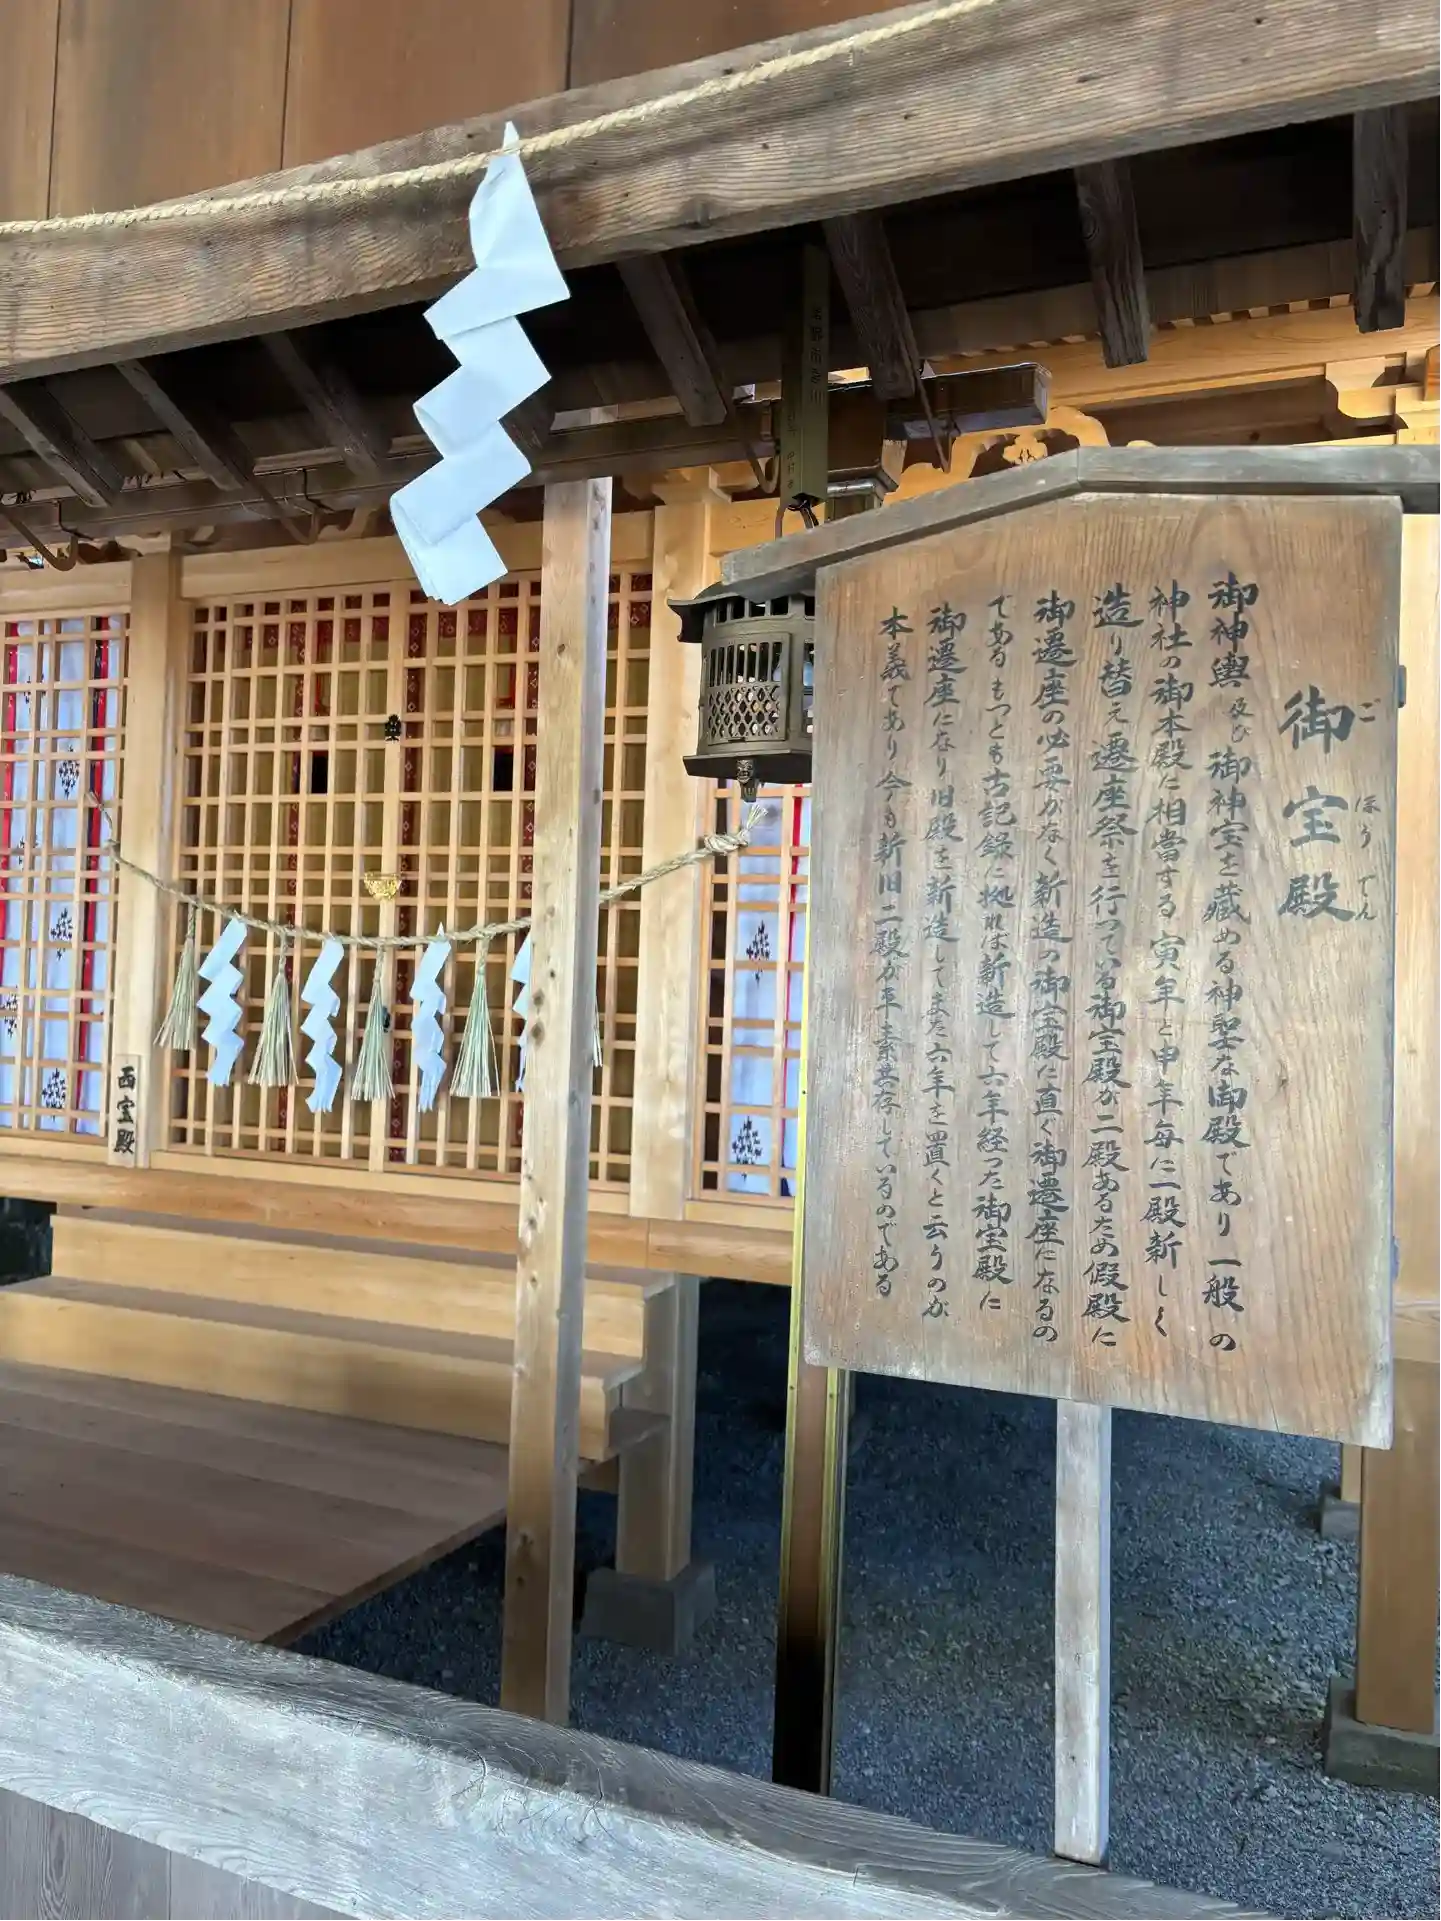 御宝殿
ごほうでん
御神輿及び御神宝を蔵める神聖な御殿であり一般の
神社の御本殿に相當する 寅年と申年毎に一殿新しく
造り替え遷座祭を行っている御宝殿が二殿あるため假殿に
御遷座の必要がなく新造の御宝殿に直ぐ御遷座になるの
である もっとも古記録に拠れば新造して六年経った御宝殿に
御遷座になり旧殿を新造してまた六年を置くと云うのが
本義であり今も新旧二殿が平素共存しているのである
西宝殿